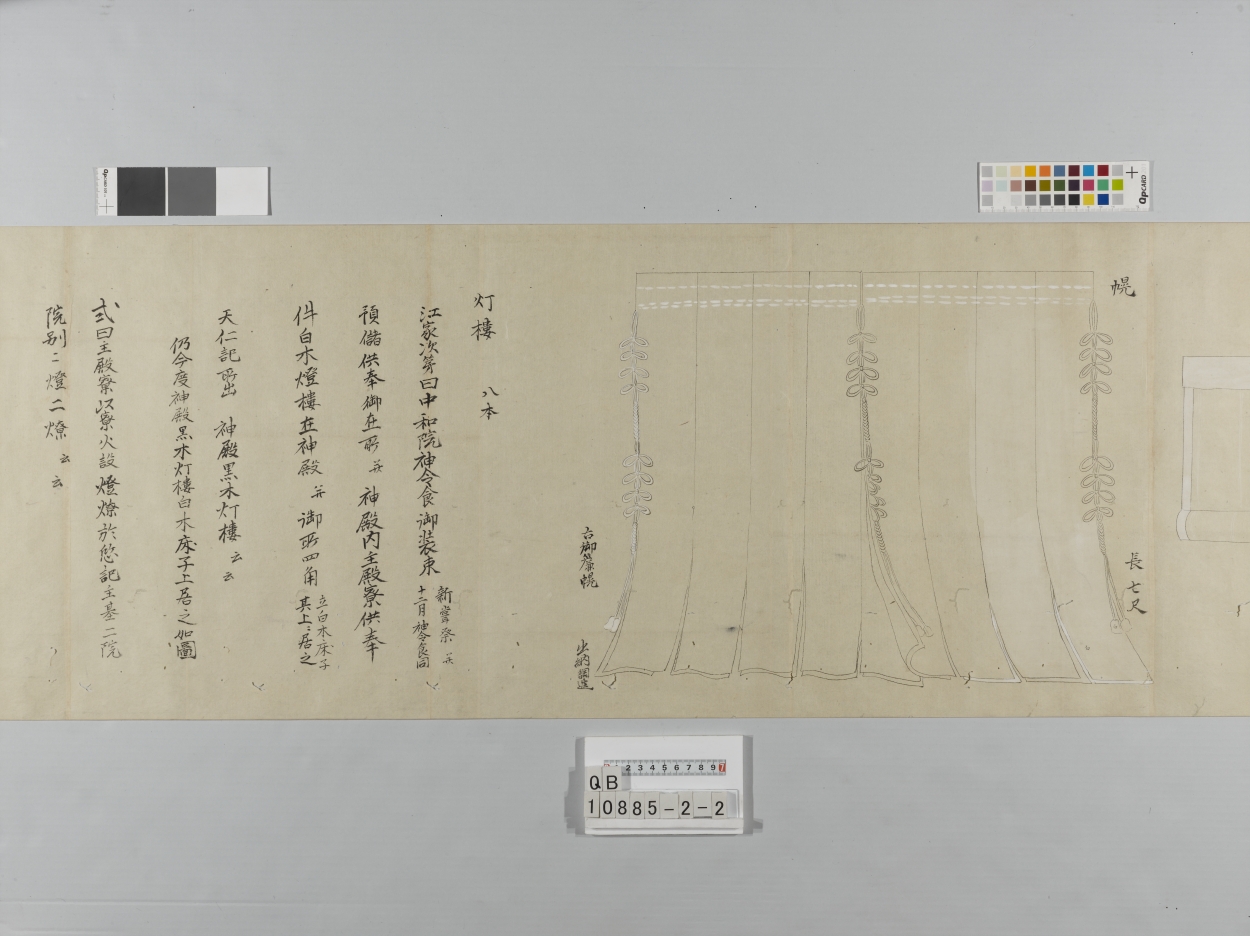 幌
長七尺
右御簾幌　出納調進
灯楼　八本
江家次第曰中和院神今食御装束 新嘗祭并 十二月神今食同
預儲供奉御在所并神殿内主殿寮供奉
件白木燈楼在神殿并御所四角 立白木床子 其上ニ居之
天仁記所出　神殿黒木灯楼云云
仍今度神殿黒木灯楼白木床子上居之如圖
式曰主殿寮以寮火設燈燎於悠記主基二院
院別ニ燈二燎云云
QPCARD
QPCARD
2 3 4 5 6 7 8 9
QB
10885-2-2